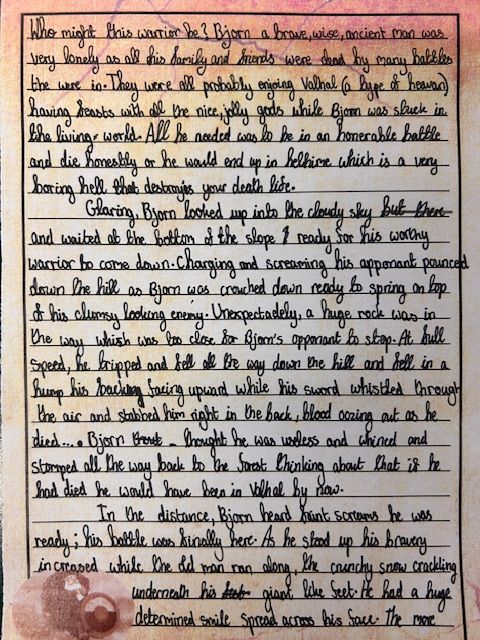 Who might this warrior be? Bjorn a brave, wise, ancient man was
very lonely as all his family and friends were dead by many battles
the were in. They were all probably enjoing Valhal (a type of heavan)
having feasts with all the nice, jolly gods while Bjorn was stuck in
the living world. All he needed was to be in an honerable battle
and die honestly or he would end up in helhime which is a very
boring hell that destroyes your death life.
Glaring, Bjorn looked up into the cloudy sky but there
and waited at the bottom of the slope ready for his worthy
warrior to come down. Charging and screaming his apponant pounced
down the hill as Bjorn was crouched down ready to spring on top
of his clumsy looking enemy. Unexpectadely, a huge rock was in
the way which was too close for Bjorn's opponant to stop. At full
speed, he tripped and fell all the way down the hill and fell in a
hump his back facing upward while his sword whistled through
the air and stabbed him right in the back, blood oozing out as he
died.... Bjorn thought he was useless and whined and
stomped all the way back to the forest thinking about that if he
had died he would have been in Valhal by now.
In the distance, Bjorn heard faint screams he was
ready; his battle was finally here. As he stood up his bravery
increased while the old man ran along the crunchy snow crackling
underneath his giant like feet. He had a huge
determined smile spread across his face. The more